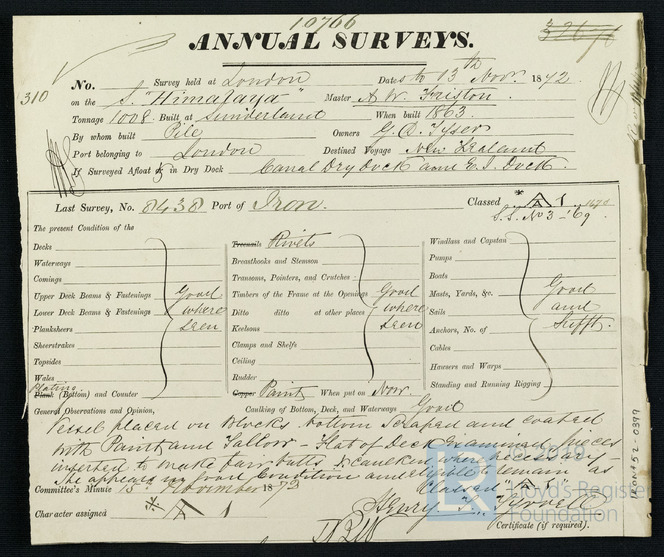 10766
ANNUAL SURVEYS.
310
No. Survey held at London Date to 13th Novr. 1872
on the S. "Himalaya" Master A W. Friston
Tonnage 1008 Built at Sunderland When built 1863
By whom built Pile Owners G. D. Tyser
Port belonging to London Destined Voyage New Zealand
If Surveyed Afloat or in Dry Dock Canal Dry Dock and E. I. Dock.
Last Survey, No. 8438 Port of Iron. Classed A 1
S.S. No 3 - '69
The present Condition of the
Decks
Waterways
Comings
Upper Deck Beams & Fastenings
Lower Deck Beams & Fastenings
Planksheers
Sheerstrakes
Topsides
Wales
Plating
Plank (Bottom) and Counter
Good
where
seen
Treenails Rivets
Breasthooks and Stemson
Transoms, Pointers, and Crutches
Timbers of the Frame at the Openings
Ditto ditto at other places
Keelsons
Clamps and Shelfs
Ceiling
Rudder
Copper Paint When put on Nov.
Good
where
seen
Windlass and Capstan
Pumps
Boats
Masts, Yards, &c.
Sails
Anchors, No. of
Cables
Hausers and Warps
Standing and Running Rigging
Good
and
Sufft.
General Observations and Opinion, Caulking of Bottom, Deck, and Waterways Good
Vessel placed on Blocks bottom scraped and coated
with Paint and Tallow - Flat of Deck Examined pieces
inserted to make fair butts & caulking where necessary -
She appears in good Condition and eligible to remain as
Classed A 1
Committee's Minute 15 November 187
Henry
Character assigned A 1
Certificate (if required).
LR
Lloyd's Register
Foundation
0399